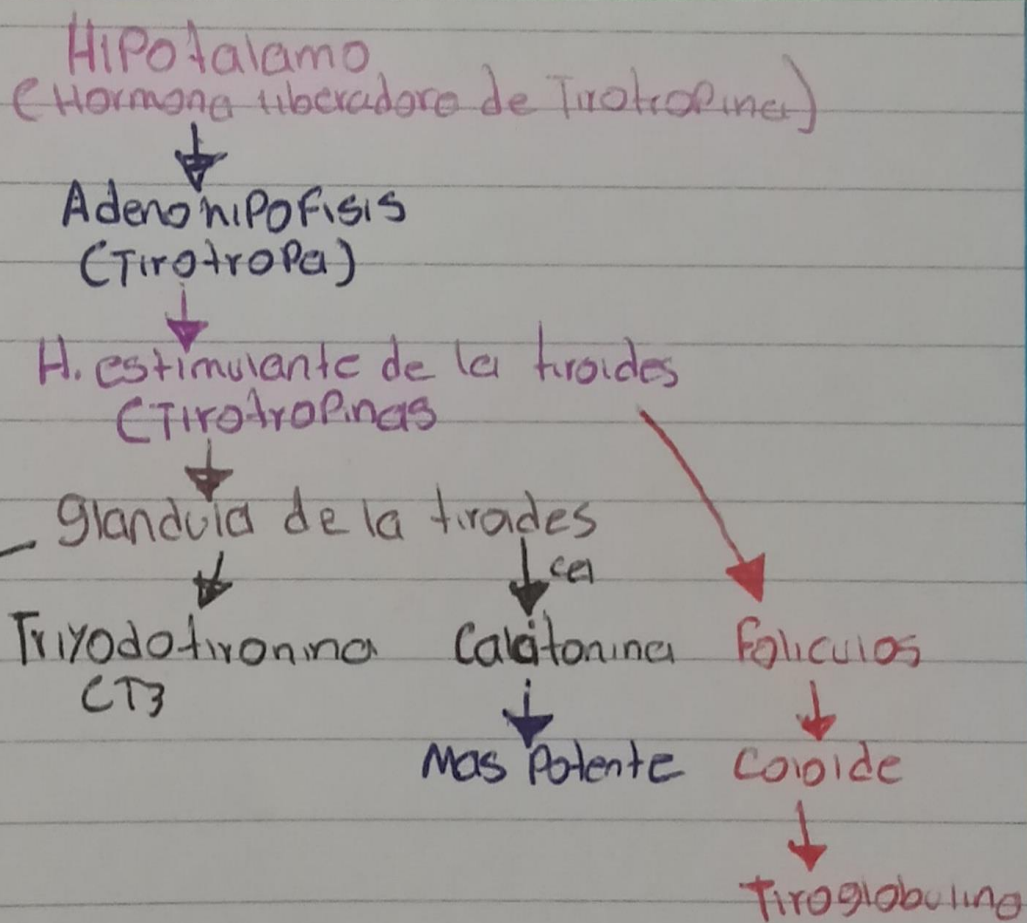 Hipotalamo
(Hormona liberadora de Tirotropina)
Adenohipofisis
(Tirotropa)
H. estimulante de la tiroides
(Tirotropinas
glandula de la tirades
cel
Triyodotironina Calcitonina Foliculos
(T3
Mas Potente Coloide
Tiroglobulina